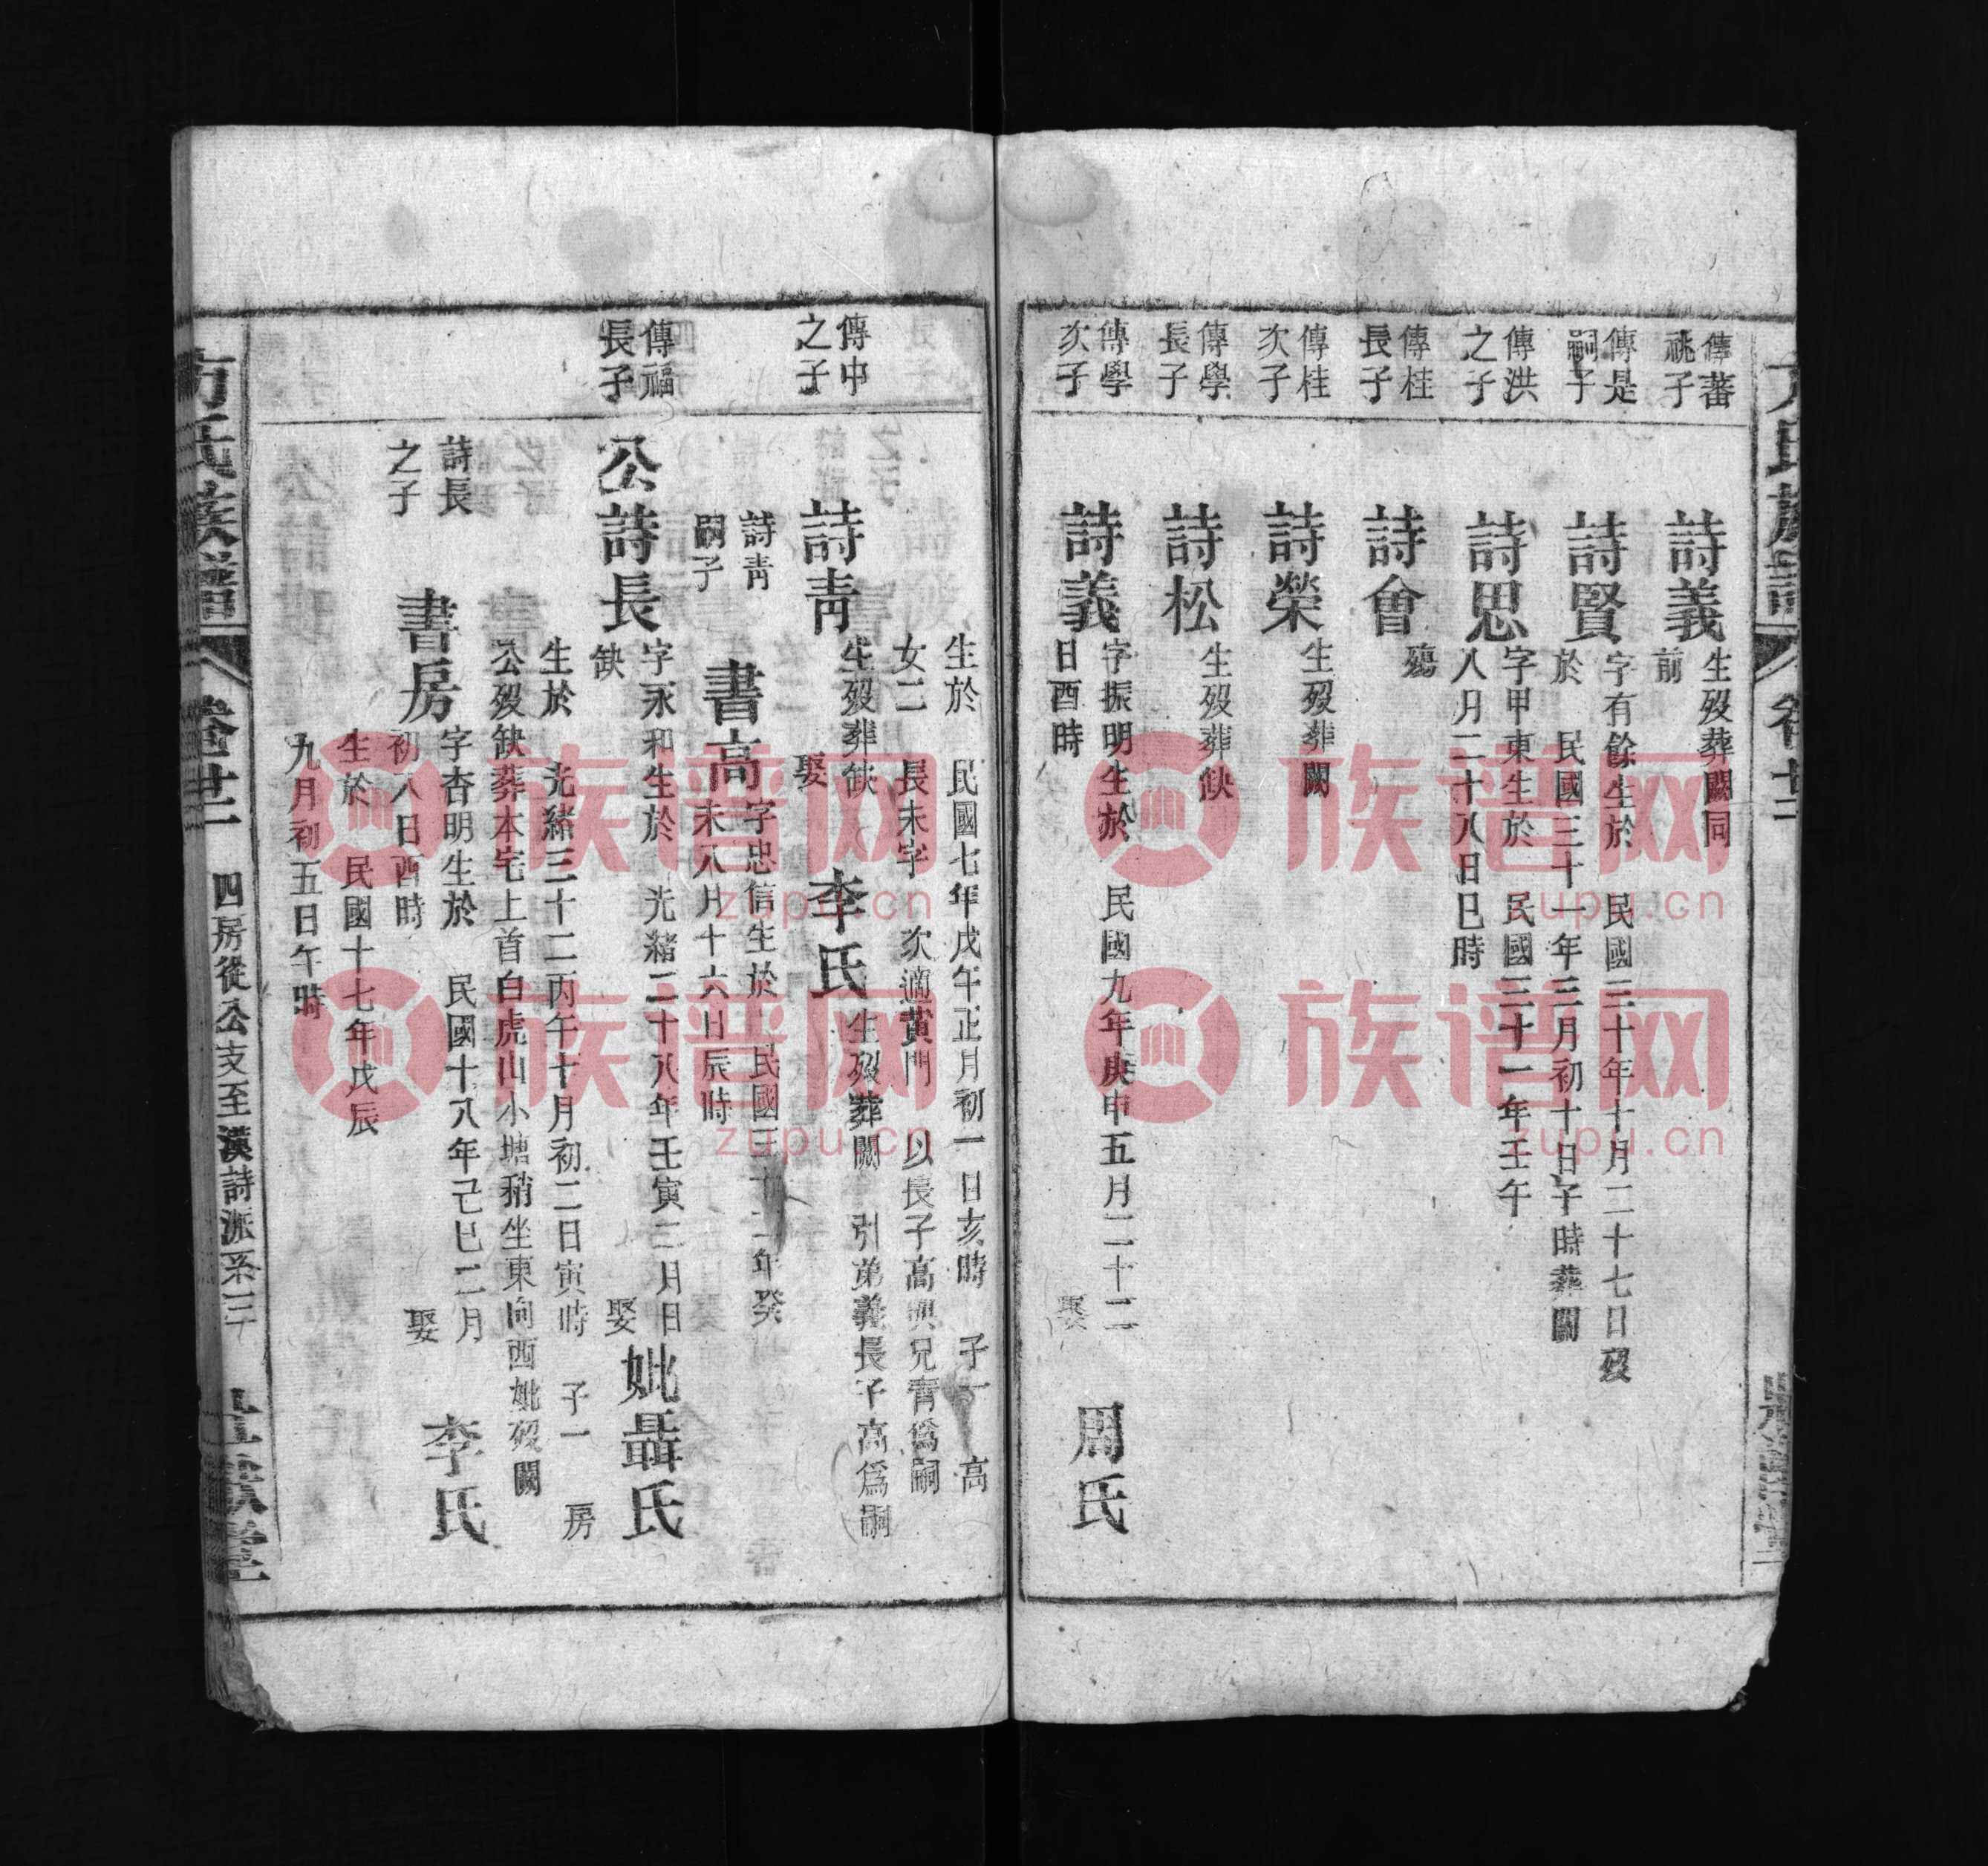 方氏族譜
卷廿二
傳蕃
祧子
詩義
生歿葬闕同
前
傳是
嗣子
詩賢
字有餘生於 民國三十年十月二十七日歿
於 民國三十一年三月初十日子時葬闕
傳洪
之子
詩思
字甲東生於 民國三十一年壬午
八月二十八日巳時
傳桂
長子
詩會
殤
傳桂
次子
詩榮
生歿葬闕
傳學
長子
詩松
生歿葬缺
傳學
次子
詩義
字振明生於 民國九年庚申五月二十二
日酉時
娶
周氏
生於 民國七年戊午正月初一日亥時 子一 高
女二 長未字 次適黃門 以長子高與兄青為嗣
傳中
之子
詩青
生歿葬缺
娶
李氏
生歿葬闕 引弟義長子高為嗣
詩青
嗣子
書高
字忠信生於 民國三十二年癸
未八月十六日辰時
傳福
長子
公詩長
字永和生於 光緒二十八年壬寅二月日
缺
娶
妣聶氏
生於 光緒三十二丙午十月初二日寅時 子一 房
公歿缺葬本宅上首白虎山小塘稍坐東向西妣歿闕
詩長
之子
書房
字杏明生於 民國十八年己巳二月
初八日酉時
娶
李氏
生於 民國十七年戊辰
九月初五日午時
方氏族譜
卷廿二
四房從公支至漢詩派系
族谱网
zupu.cn
族谱网
zupu.cn
族谱网
zupu.cn
族谱网
zupu.cn